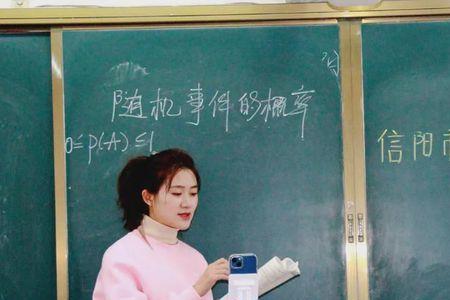 随机事件的概率
0≤P(A)≤1
信阳市